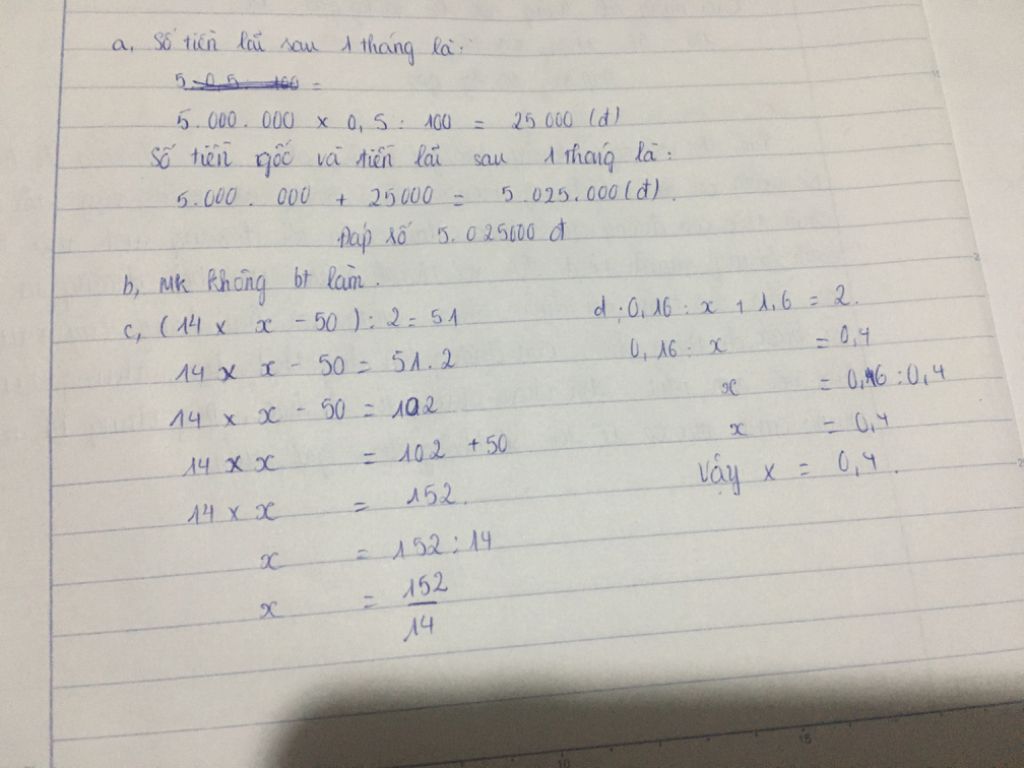 a, Số tiền lãi sau 1 tháng là:
5.000.000 x 0,5 : 100 = 25000 (đ)
Số tiền gốc và tiền lãi sau 1 tháng là:
5.000.000 + 25000 = 5.025.000 (đ).
Đáp số 5.025000 đ
b, Mk không bt làm.
c, (14 x x - 50) : 2 = 51
14 x x - 50 = 51.2
14 x x - 50 = 102
14 x x = 102 + 50
14 x x = 152.
x = 152 : 14
x = 152/14
d : 0,16 : x + 1,6 = 2.
0,16 : x = 0,4
x = 0,16 : 0,4
x = 0,4
Vậy x = 0,4.